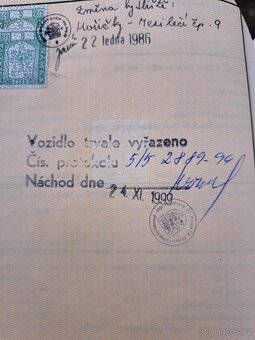 Změna bydliště:
Hořičky - Mezilečí čp. 9
22 ledna 1986
Vozidlo trvale vyřazeno
Čís. protokolu 5/5 2889-94
Náchod dne
24. XI. 1999